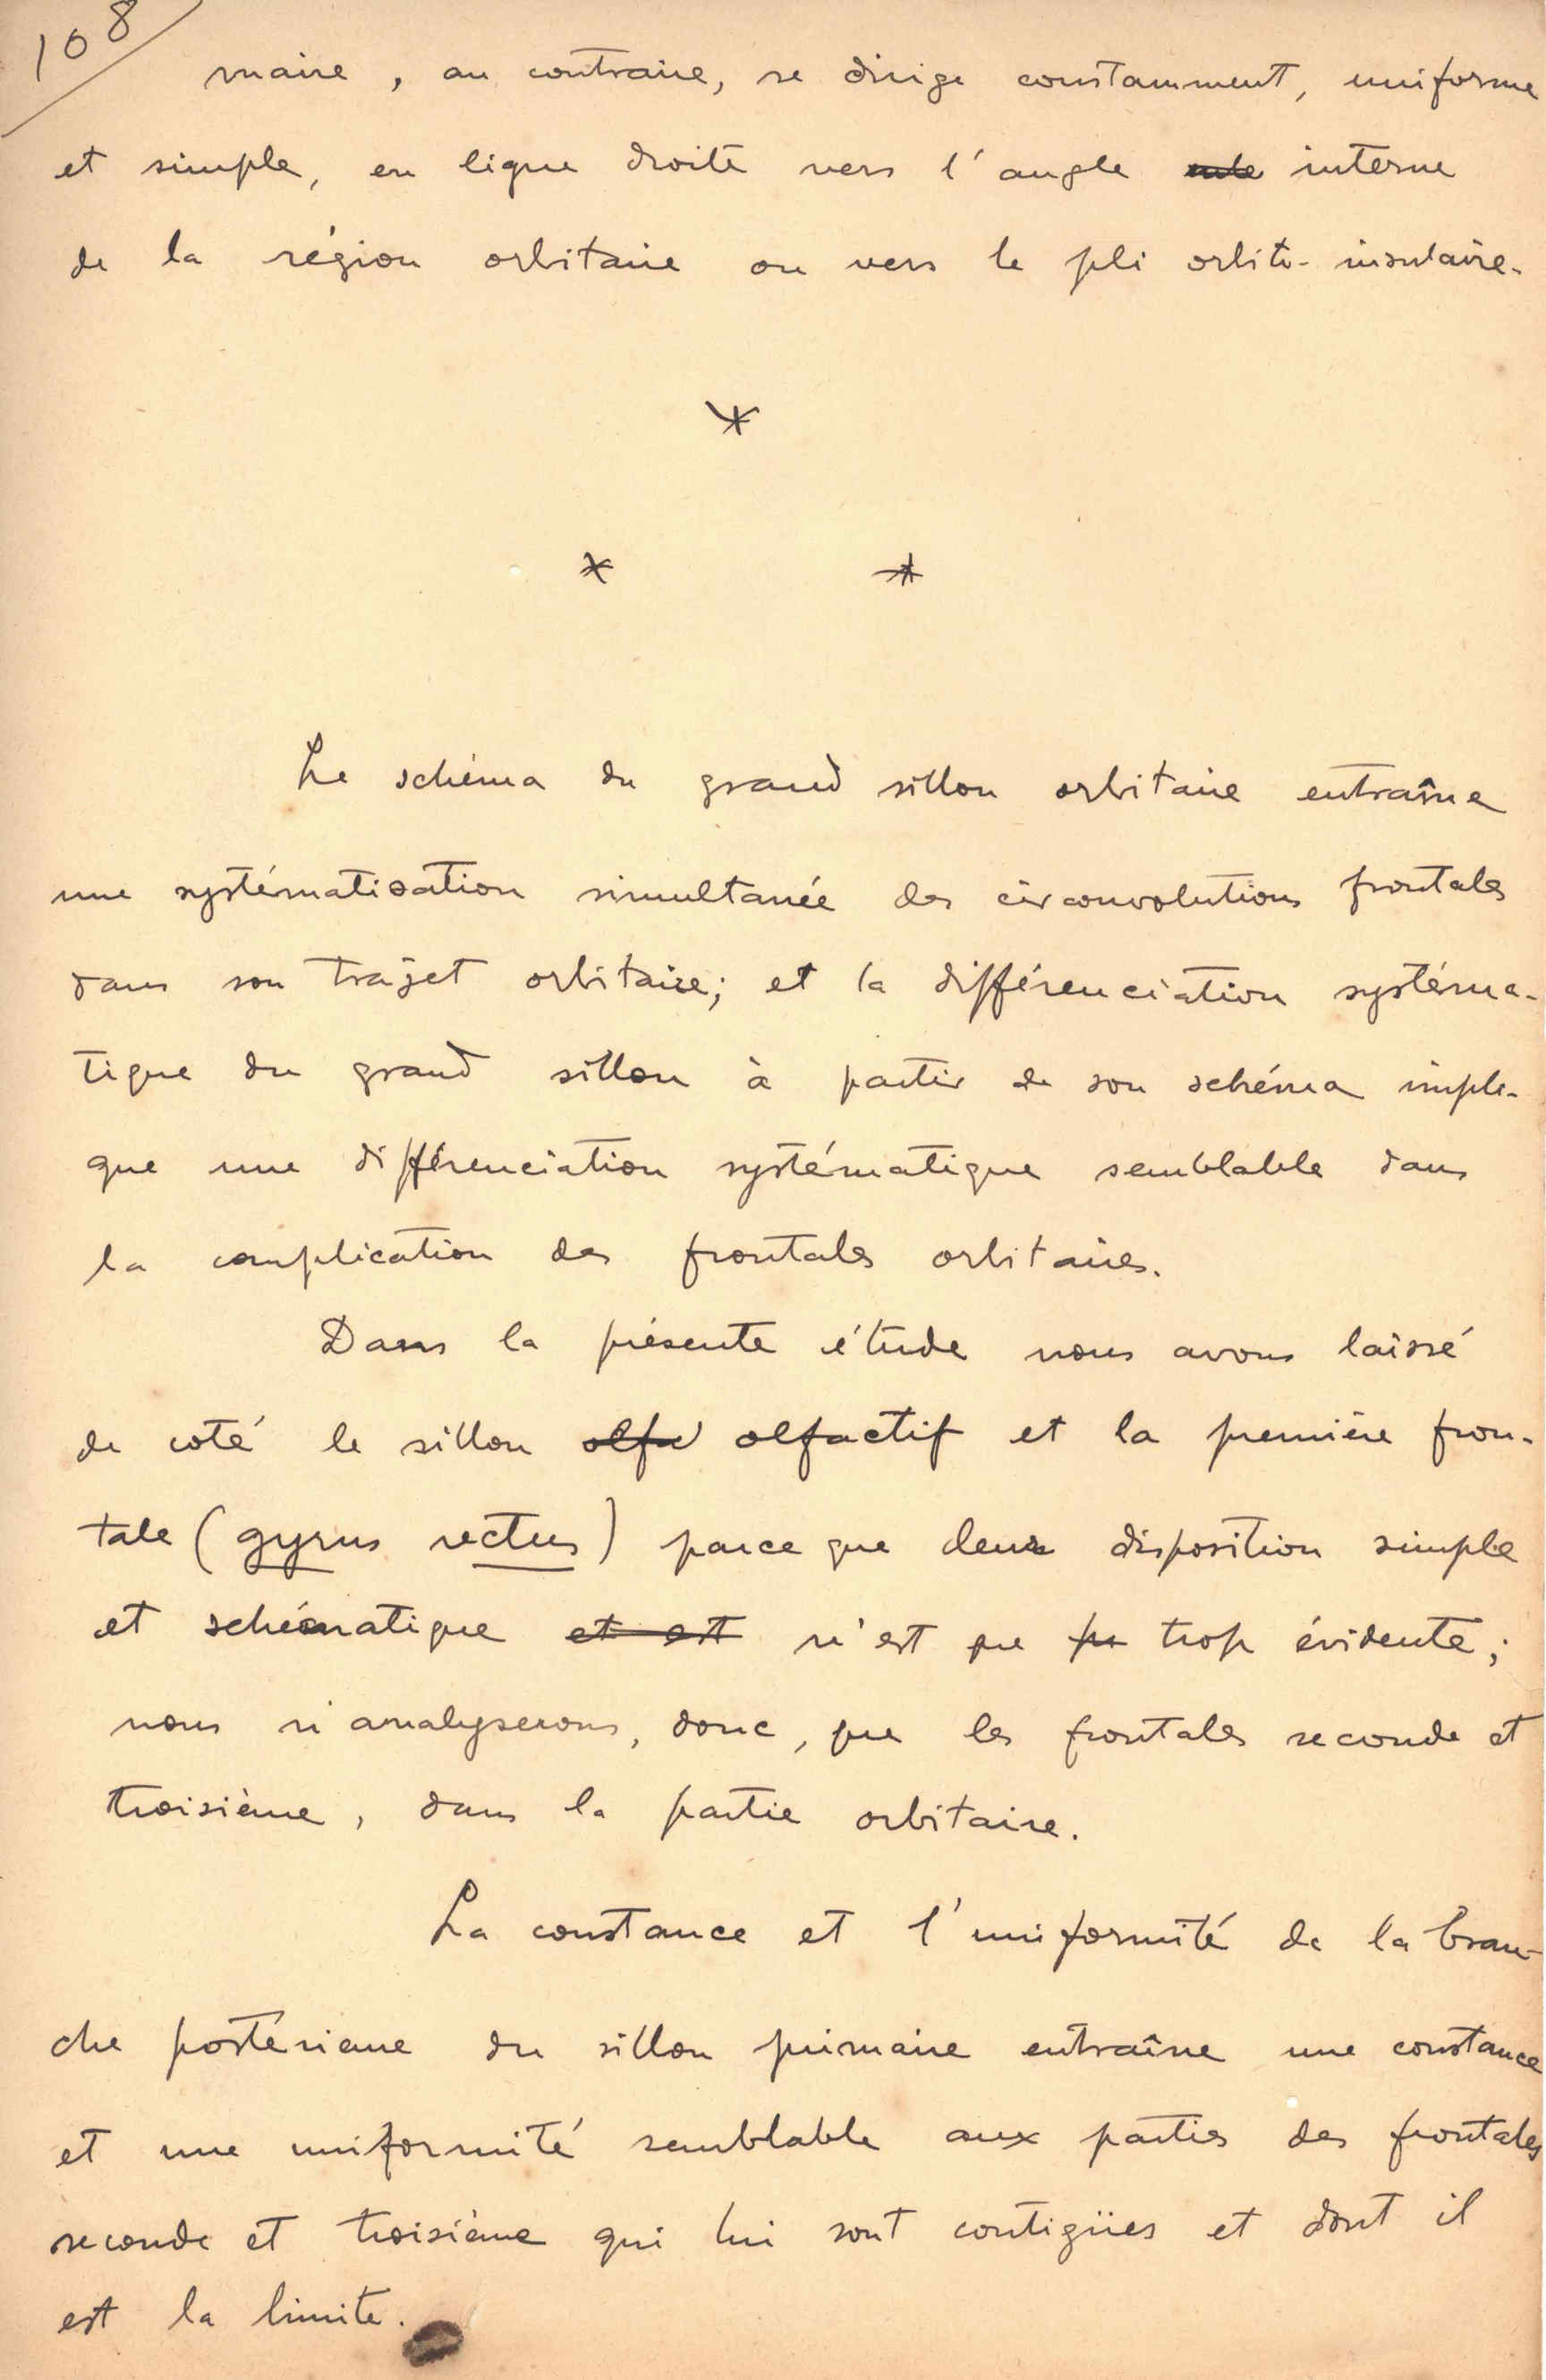 108
maire, au contraire, se dirige constamment, uniforme
et simple, en ligne droite vers l'angle interne
de la région orbitaire ou vers le pli orbito-insulaire.
*
* *
Le schéma du grand sillon orbitaire entraîne
une systématisation simultanée des circonvolutions frontales
dans son trajet orbitaire; et la différenciation systéma-
tique du grand sillon à partir de son schéma impli-
que une différenciation systématique semblable dans
la complication des frontales orbitaires.
Dans la présente étude nous avons laissé
de coté le sillon olfa olfactif et la première fron-
tale (gyrus rectus) parce que leur disposition simple
et schématique et est n'est que trop évidente;
nous n'analyserons, donc, que les frontales seconde et
troisième, dans la partie orbitaire.
La constance et l'uniformité de la bran-
che postérieure du sillon primaire entraîne une constance
et une uniformité semblable aux parties des frontales
seconde et troisième qui lui sont contigües et dont il
est la limite.